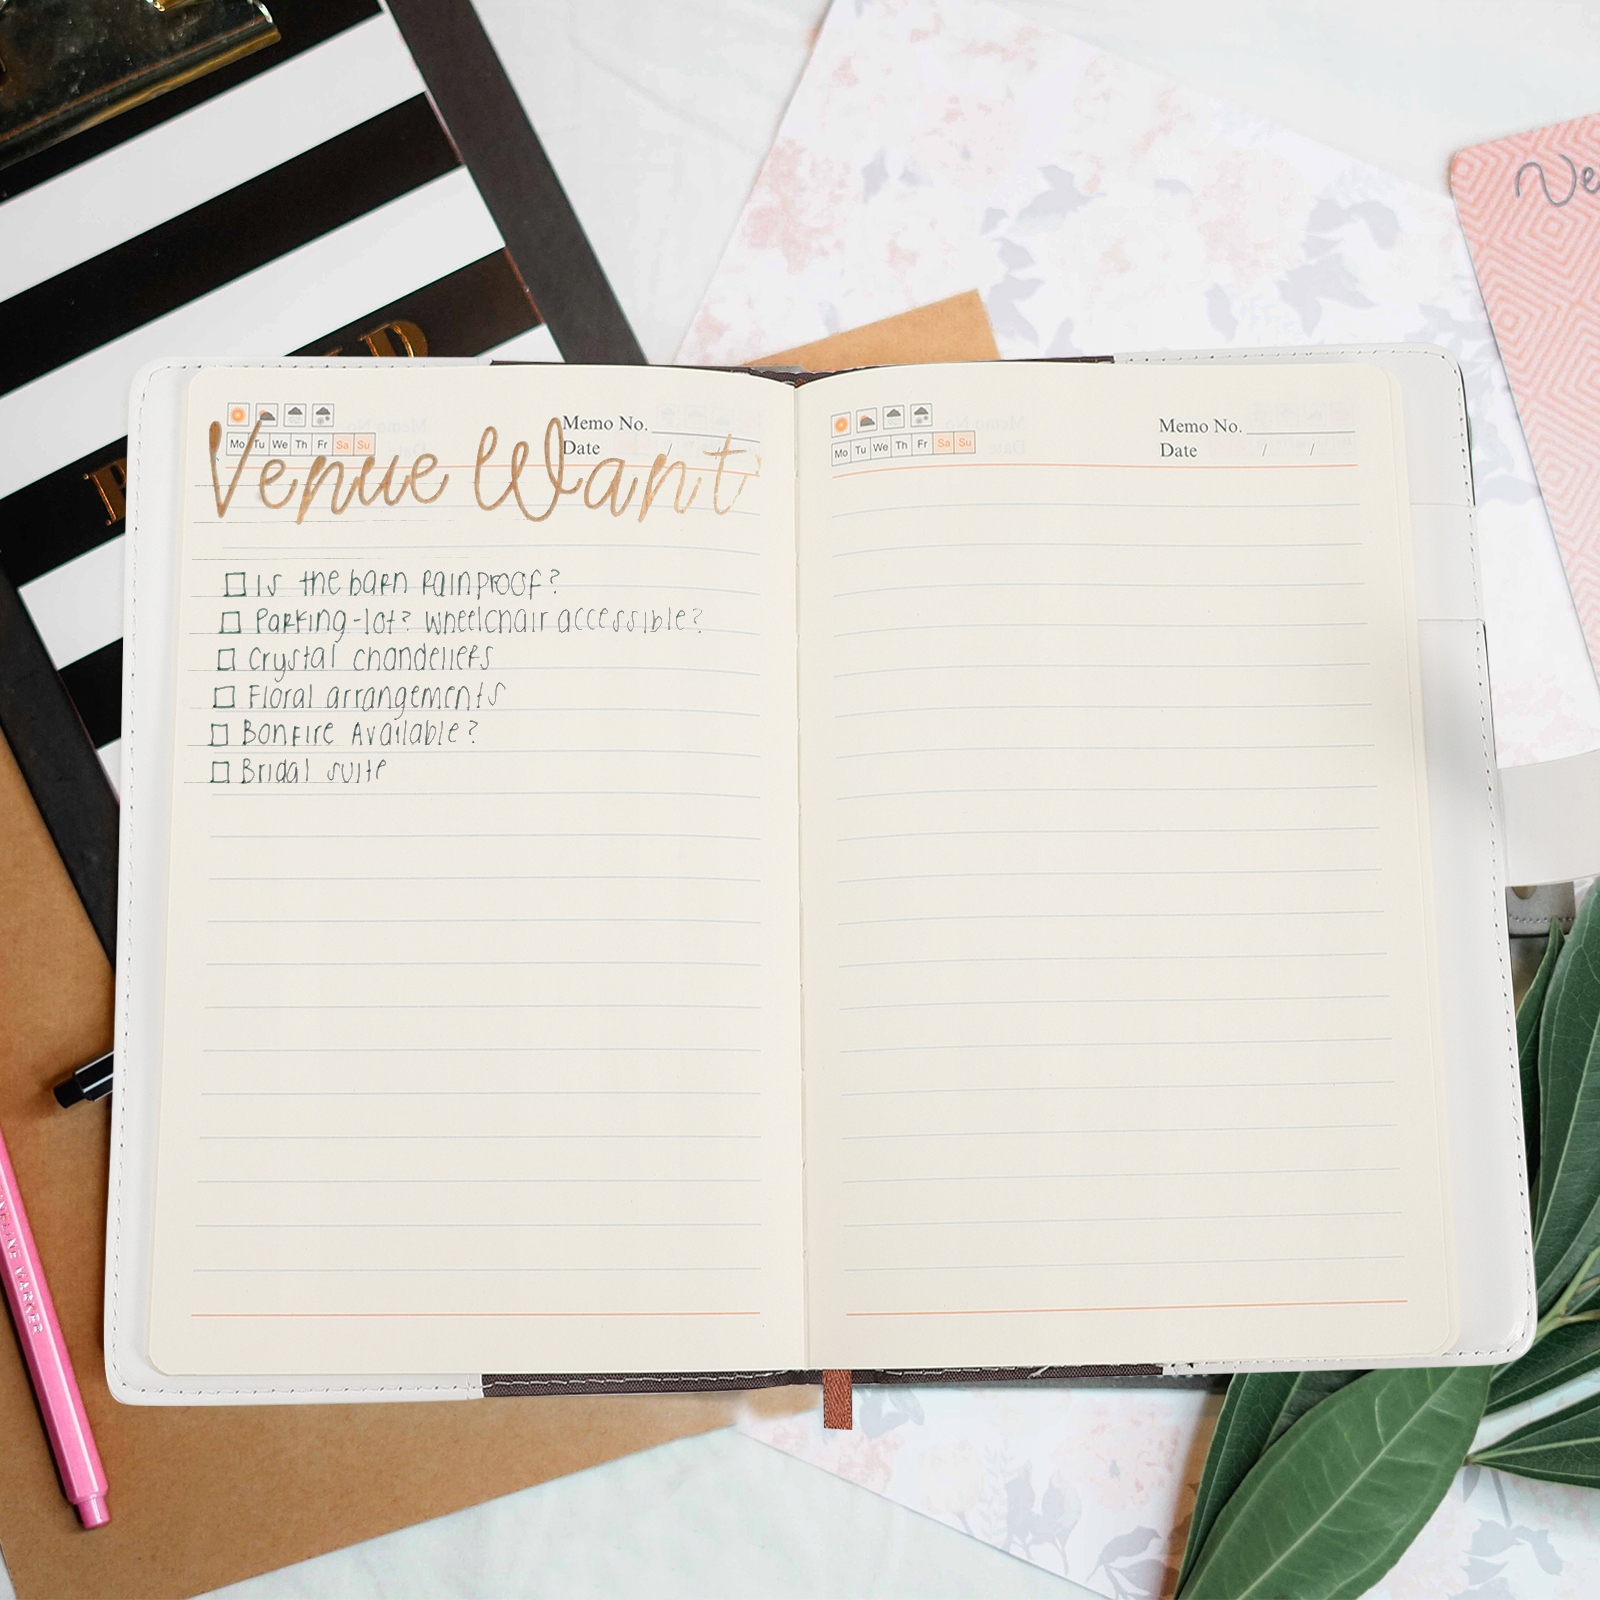 Memo No.
Date / /
Mo Tu We Th Fr Sa Su
Venue Want
Is the barn rainproof?
Parking-lot? Wheelchair accessible?
Crystal chandeliers
Floral arrangements
Bonfire Available?
Bridal suite
Memo No.
Date / /
Mo Tu We Th Fr Sa Su
MARKER